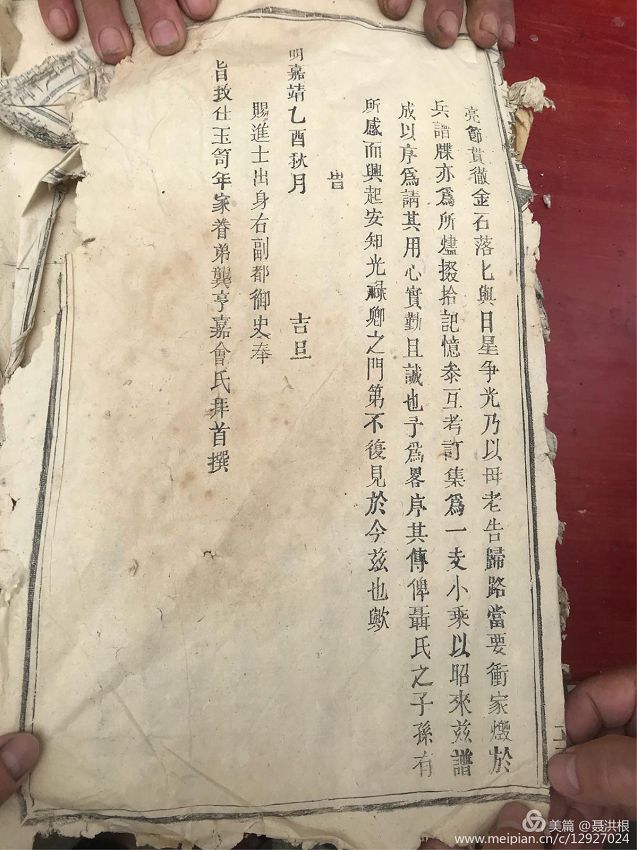 亮節貫徹金石落匕與日星争光乃以母老告歸路當要衝家燬於
兵譜牒亦爲所燼掇拾記憶叅互考訂集爲一支小乘以昭來兹譜
成以序爲請其用心實勤且誠也予爲畧序其傳俾聶氏之子孫有
所感而興起安知光祿卿之門第不復見於今兹也歟
旹
明嘉靖乙酉秋月 吉旦
賜進士出身右副都御史奉
旨致仕玉笥年家眷弟龔亨嘉會氏拜首撰
美篇 @聂洪根
www.meipian.cn/c/12927024